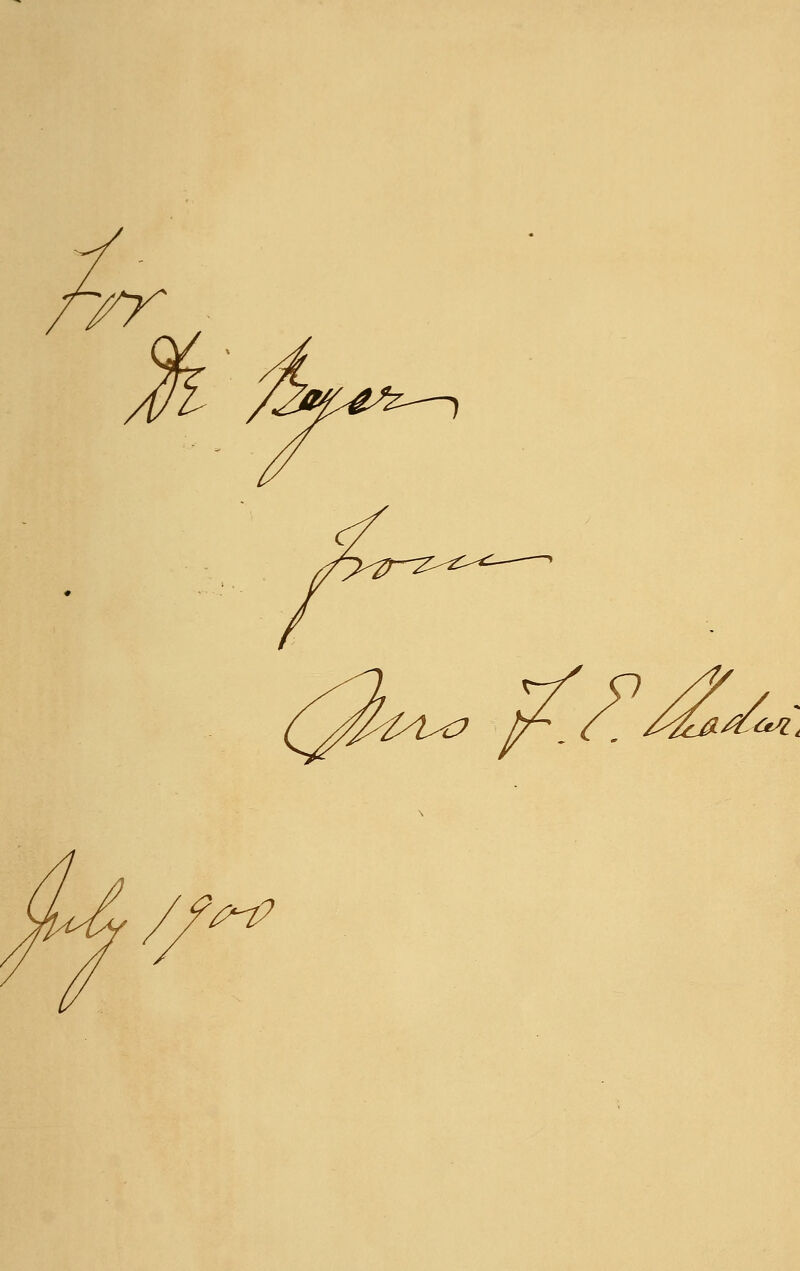 For
Dr Beyer
from
Mrs F. E. Chadwi
July 1900